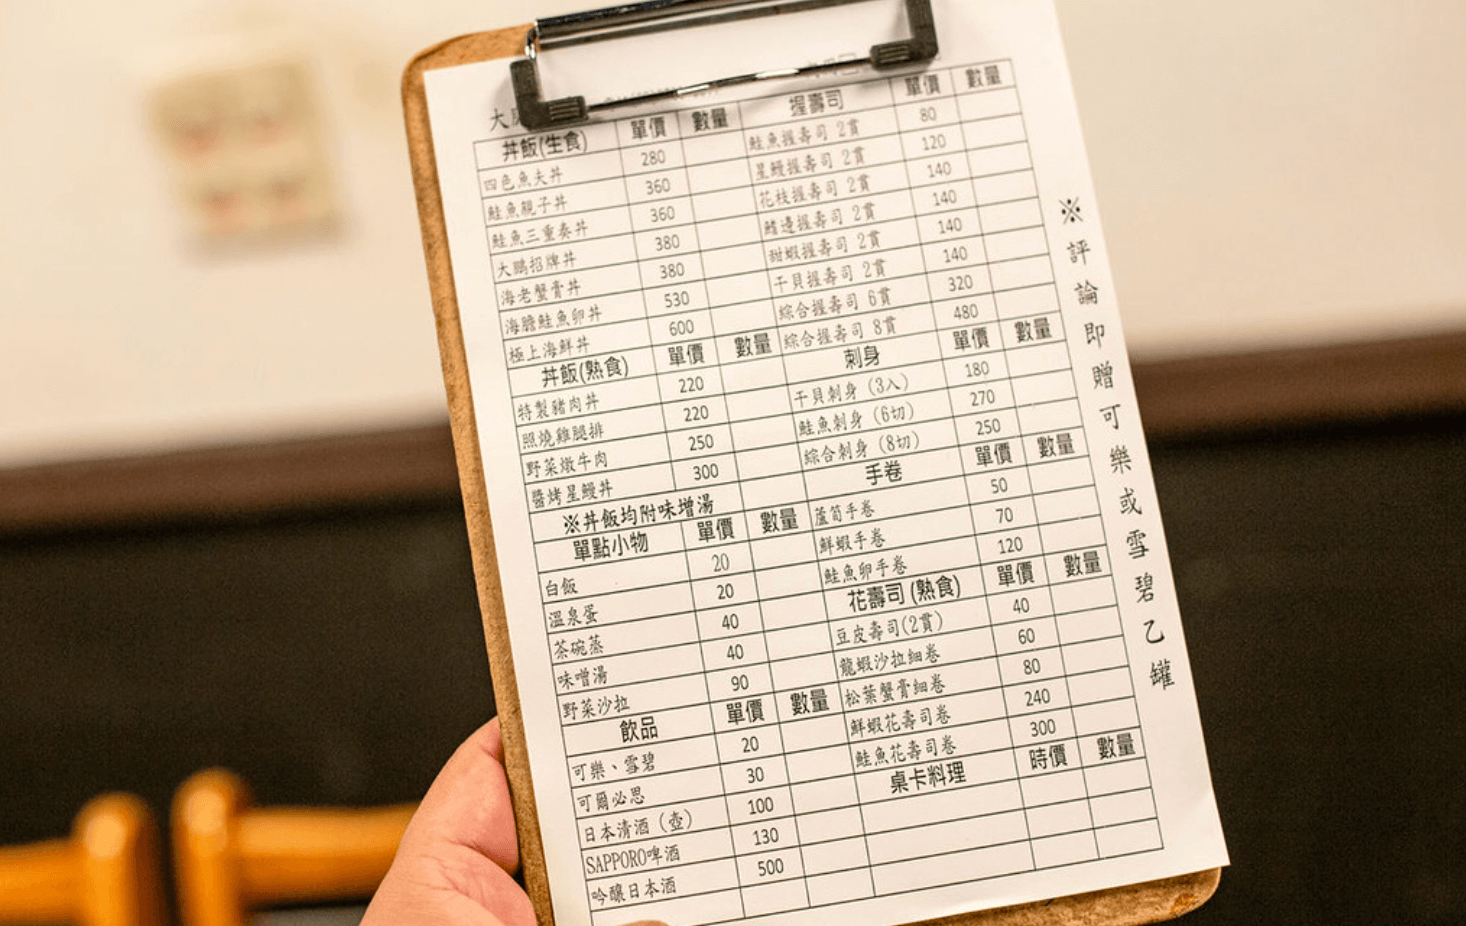 大
丼飯(生食) 單價 數量
四色魚夫丼 280
鮭魚親子丼 360
鮭魚三重奏丼 360
大鵬招牌丼 380
海老蟹膏丼 380
海膽鮭魚卵丼 530
極上海鮮丼 600
丼飯(熟食) 單價 數量
特製豬肉丼 220
照燒雞腿排 220
野菜燉牛肉 250
醬烤星鰻丼 300
※丼飯均附味增湯
單點小物 單價 數量
白飯 20
溫泉蛋 20
茶碗蒸 40
味噌湯 40
野菜沙拉 90
飲品 單價 數量
可樂、雪碧 20
可爾必思 30
日本清酒(壺) 100
SAPPORO啤酒 130
吟釀日本酒 500
握壽司 單價 數量
鮭魚握壽司 2貫 80
星鰻握壽司 2貫 120
花枝握壽司 2貫 140
鰭邊握壽司 2貫 140
甜蝦握壽司 2貫 140
干貝握壽司 2貫 140
綜合握壽司 6貫 320
綜合握壽司 8貫 480
刺身 單價 數量
干貝刺身 (3入) 180
鮭魚刺身 (6切) 270
綜合刺身 (8切) 250
手卷 單價 數量
蘆筍手卷 50
鮮蝦手卷 70
鮭魚卵手卷 120
花壽司 (熟食) 單價 數量
豆皮壽司(2貫) 40
龍蝦沙拉細卷 60
松葉蟹膏細卷 80
鮮蝦花壽司卷 240
鮭魚花壽司卷 300
桌卡料理 時價 數量
※評論即贈可樂或雪碧乙罐